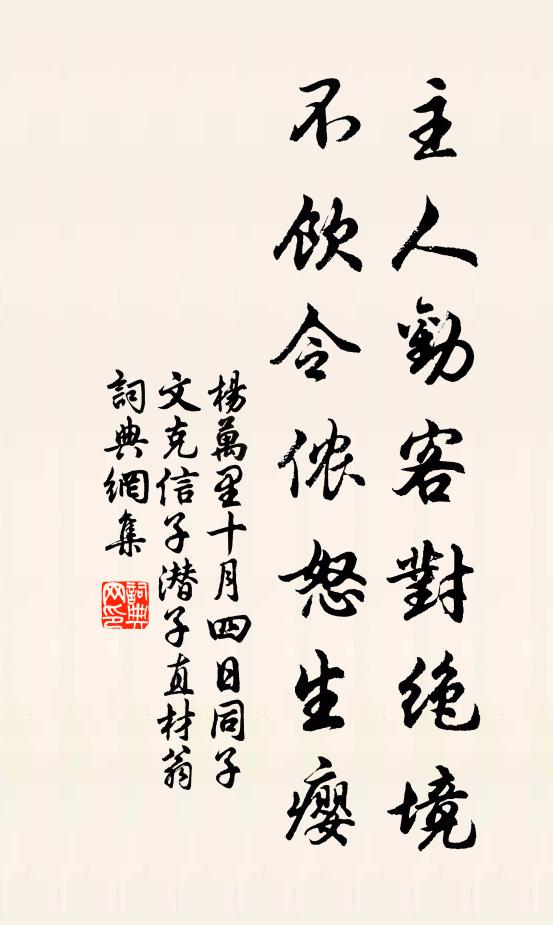 主人勸客對绝境
不飲令侬怒生癭
楊萬里十月四日同子
文克信子潜子直材翁
詞典網集
詞典
网印